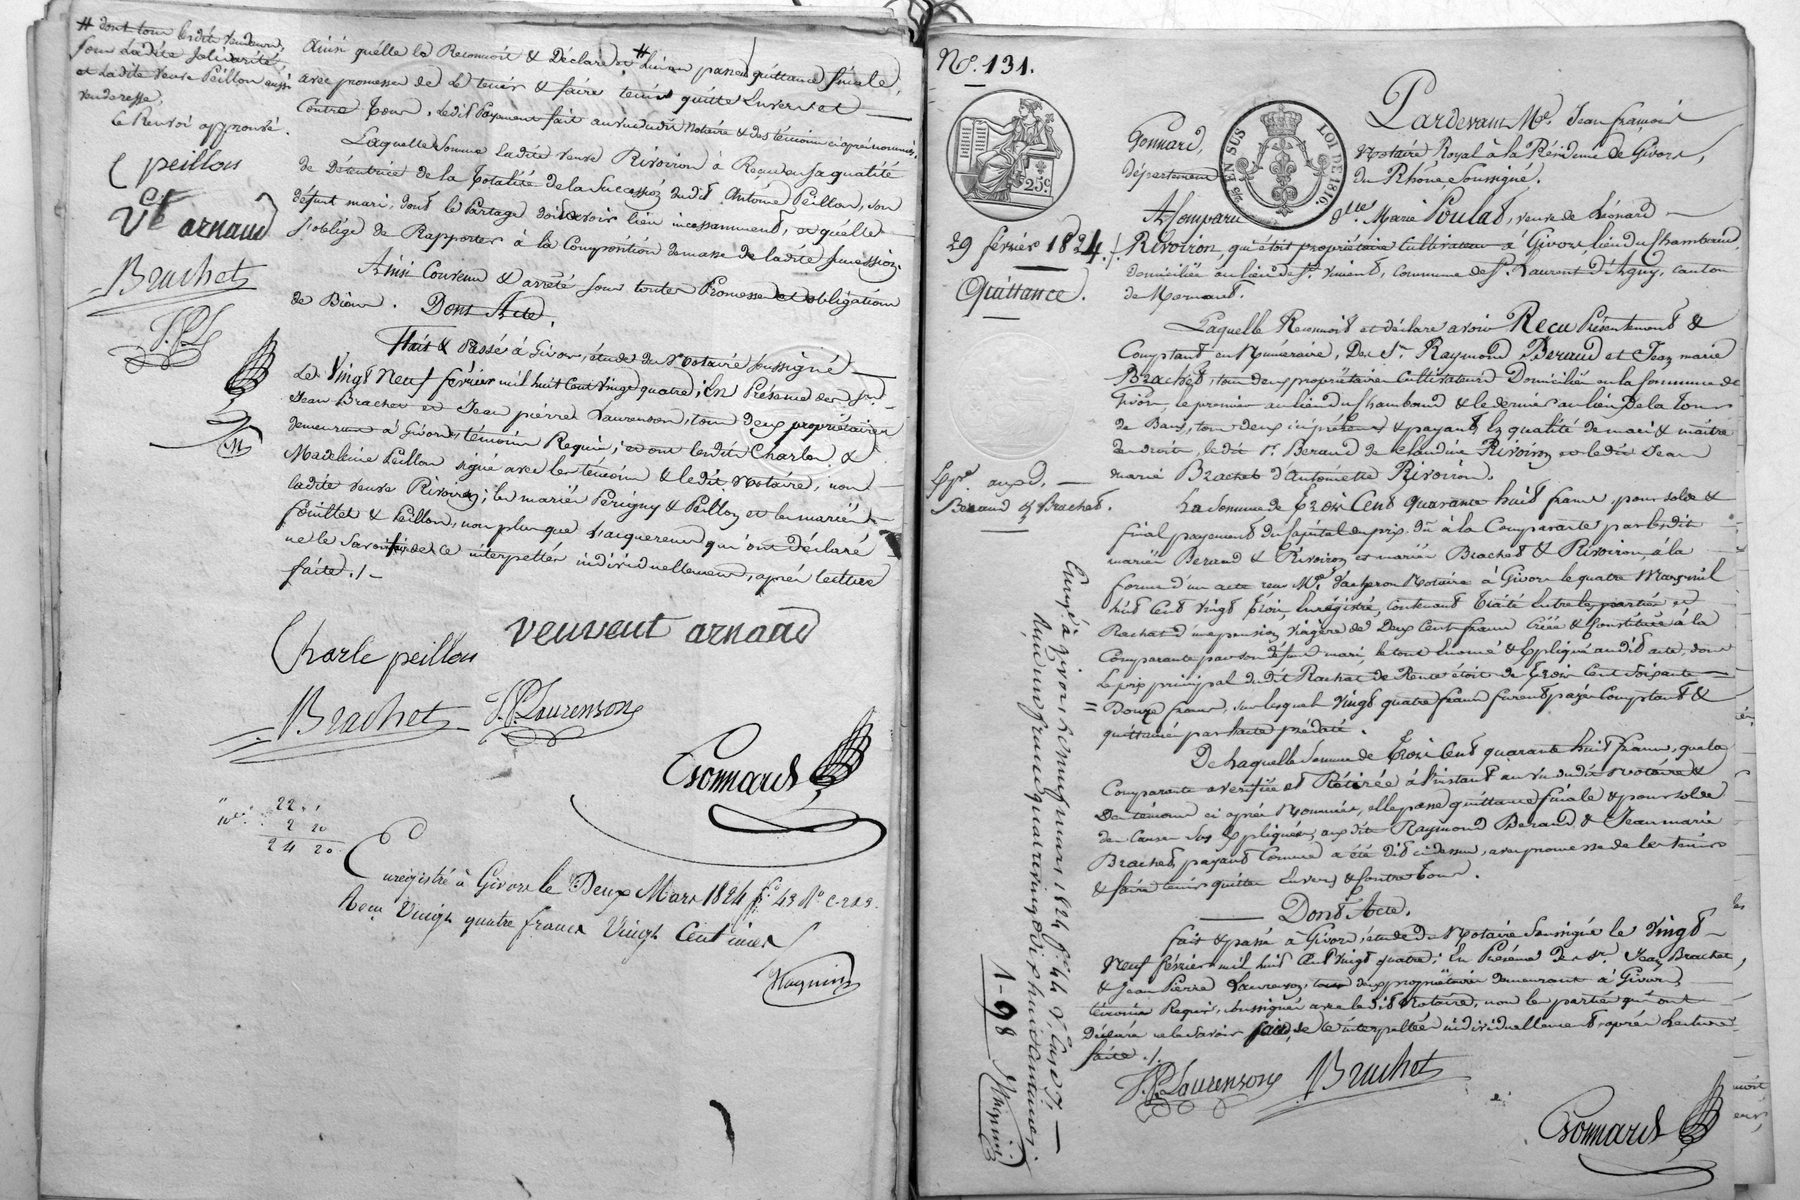 # dont tous lesdits vendeurs,
sous ladite solidarité,
et ladite veuve Peillon aussi
venderesse,
Le Renvoi approuvé.
C peillon
Vt arnaud
Brachet
J.P.L
Ainsi qu'elle le Reconnoit & Déclare et # lui en passe quittance finale,
avec promesse de le tenir & faire tenir quitte Envers et
Contre Tous, ledit Payement fait au vu dudit Notaire & des témoins ci après nommés,
Laquelle Somme ladite veuve Rivoiron à Reçue en sa qualité
de Détentrice de la Totalité de la Succession dudit Antoine Peillon, son
défunt mari, dont le Partage doit avoir lieu incessamment, et qu'elle
s'oblige de Rapporter à la Composition de masse de ladite succession.
Ainsi Convenu & arrêté sous toutes Promesses et obligations
de Biens. Dont Acte
Fait & Passé à Givors, étude du Notaire soussigné
Le Vingt Neuf février mil huit Cent vingt quatre; En Présence des Srs
Jean Brachet et Jean pierre Laurenson, tous deux propriétaires
demeurant à Givors témoins Requis; et ont lesdits Charles &
Madeleine Peillon signé avec les témoins & ledit Notaire, non
ladite veuve Rivoiron; les mariés Périgny & Peillon et les mariés
Fouillet & Peillon, non plus que l'acquereur qui ont Déclaré
ne le savoir faire de ce interpellés individuellement, après lecture
faite ./.
Charle peillon veuvent arnaud
Brachet J.P. Laurenson
Gonnard
22 "
2 20
24 20
Enregistré à Givors le Deux Mars 1824 fo 43 Ro c. 2 & 3.
Reçu Vingt quatre francs Vingt Centimes
Magnin
No. 131.
25c
75 EN SUS LOI DE 1816.
29 février 1824.
Quittance.
Expn aux d.
Beraud & Brachet.
Pardevant Me. Jean françois
Gonnard, Notaire Royal à la Résidence de Givors,
département du Rhône soussigné.
A Comparu Dlle Marie Poulat, veuve de Léonard
Rivoiron, qui étoit propriétaire Cultivateur à Givors lieu du Chambaud,
domiciliée au lieu de St. Vincent, Commune de St. Laurent d'Agny, canton
de Mornant.
Laquelle Reconnoit et déclare avoir Recu Présentement &
Comptant en Numéraire, Des Srs Raymond Beraud et Jean marie
Brachet, tous deux propriétaires Cultivateurs Domiciliés en la Commune de
Givors, le premier au lieu du Chambaud & le dernier au lieu De la Tour
de Bans, tous deux ici présents & payant, En qualité de mari & maître
des droits, ledit Sr. Beraud de Claudine Rivoiron et ledit Jean
marie Brachet d'Antoinette Rivoiron.
La Somme de Trois Cent quarante huit francs, pour solde &
final payement du Capital en prix dû à la Comparante par lesdits
mariés Beraud & Rivoiron, et mariés Brachet & Rivoiron, à la
forme d'un acte reçu Me. Dacheron Notaire à Givors le quatre Mars mil
huit Cent vingt trois, Enregistré, contenant Traité Entre les parties et
Rachat d'une pension viagère de Deux Cent francs Créée & Constituée à la
Comparante par son défunt mari, le tout Enoncé & Expliqué audit acte, dont
Le prix principal dudit Rachat de Rente étoit de Trois Cent soixante
Douze francs, sur lesquels Vingt quatre francs furent payés Comptant &
quittancés par l'acte prédaté.
De laquelle Somme de Trois Cent quarante huit francs, que la
Comparante a verifiée et Retirée à l'instant au vu dudit Notaire &
Des témoins ci après Nommés, elle passe quittance finale & pour solde
des Causes sus Expliquées, aux dits Raymond Beraud & Jean marie
Brachet, payant Comme a été Dit ci dessus, avec promesse de les tenir
& faire tenir quittes Envers & Contre Tous.
Dont Acte.
fait & passé à Givors, étude du Notaire Soussigné le Vingt
Neuf février mil huit Cent vingt quatre; En Présence Des Srs. Jean Brachet,
& Jean Pierre Laurenson, tous deux propriétaires demeurant à Givors,
témoins Requis, soussignés avec ledit Notaire, non les parties qui ont
Déclaré ne le savoir faire, de ce interpellées individuellement, après Lecture
faite ./.
J.P. Laurenson Brachet
Gonnard
Enrgé à givors le neuf mars 1824 fo 44 Vo Cases 5,
Reçu un franc quatre vingt dix huit centimes
1-98 Magnin